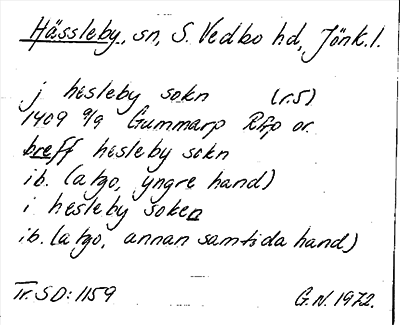 Hässleby, sn, S. Vedbo hd, Jönk.l.
j hesleby sokn (r.5)
1409 9/9 Gummarp RAp or.
breff hesleby sokn
ib. (atgo, yngre hand)
i hesleby soken
ib. (atgo, annan samtida hand)
Tr. SD: 1159 G.N. 1972.